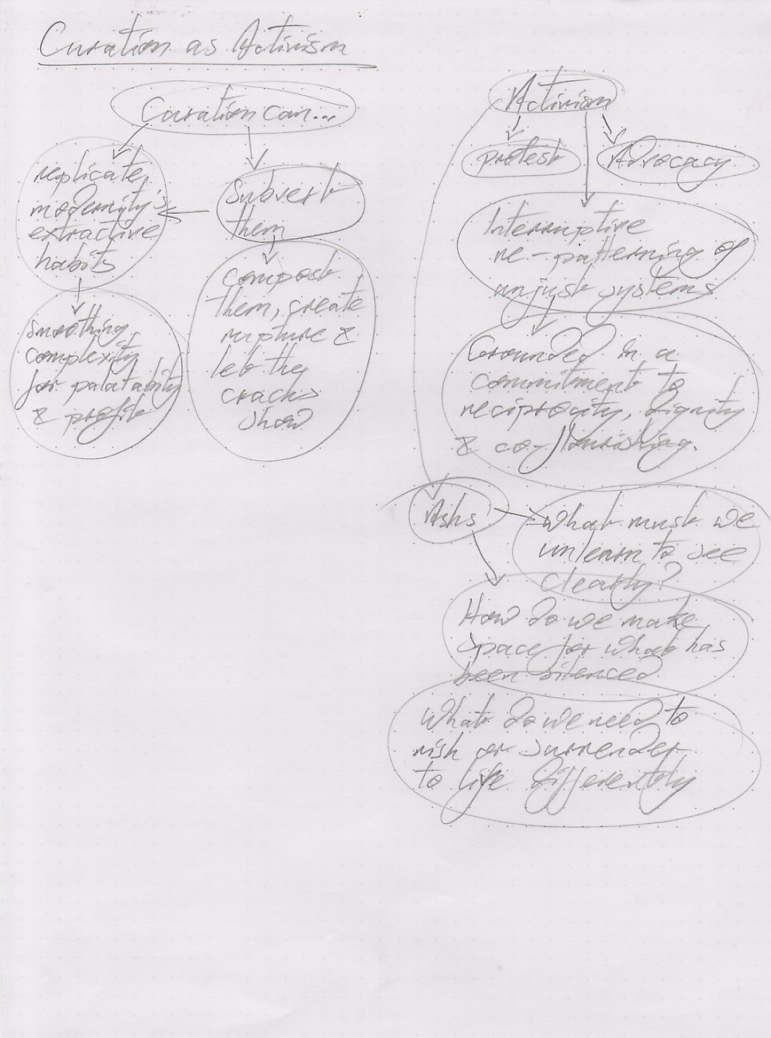 Curation as Activism
Curation can...
replicate
modernity's
extractive
habits
Subvert
them
smoothing
complexity
for palatability
& profit
compost
them, create
rupture &
let the
cracks
show
Activism
protest
Advocacy
Interruptive
re-patterning of
unjust systems
Grounded in a
commitment to
reciprocity, dignity
& co-flourishing.
Asks
What must we
unlearn to see
clearly?
How do we make
space for what has
been silenced
What do we need to
risk or surrender
to life differently